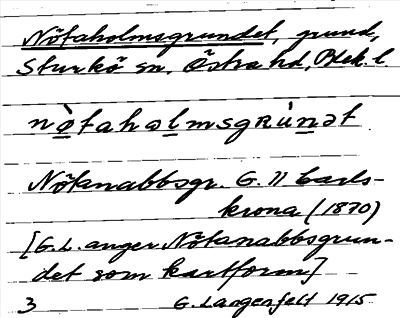 Nötaholmsgrundet, grund,
Sturkö sn, Östra hd, Blek. l.
nò̤tahəlmsgʀùnət
Nötanabbsgr. G. 11 Carls-
krona (1870)
[G. L. anger Nötanabbsgrun-
det som kartform]
3 G. Langenfelt 1915